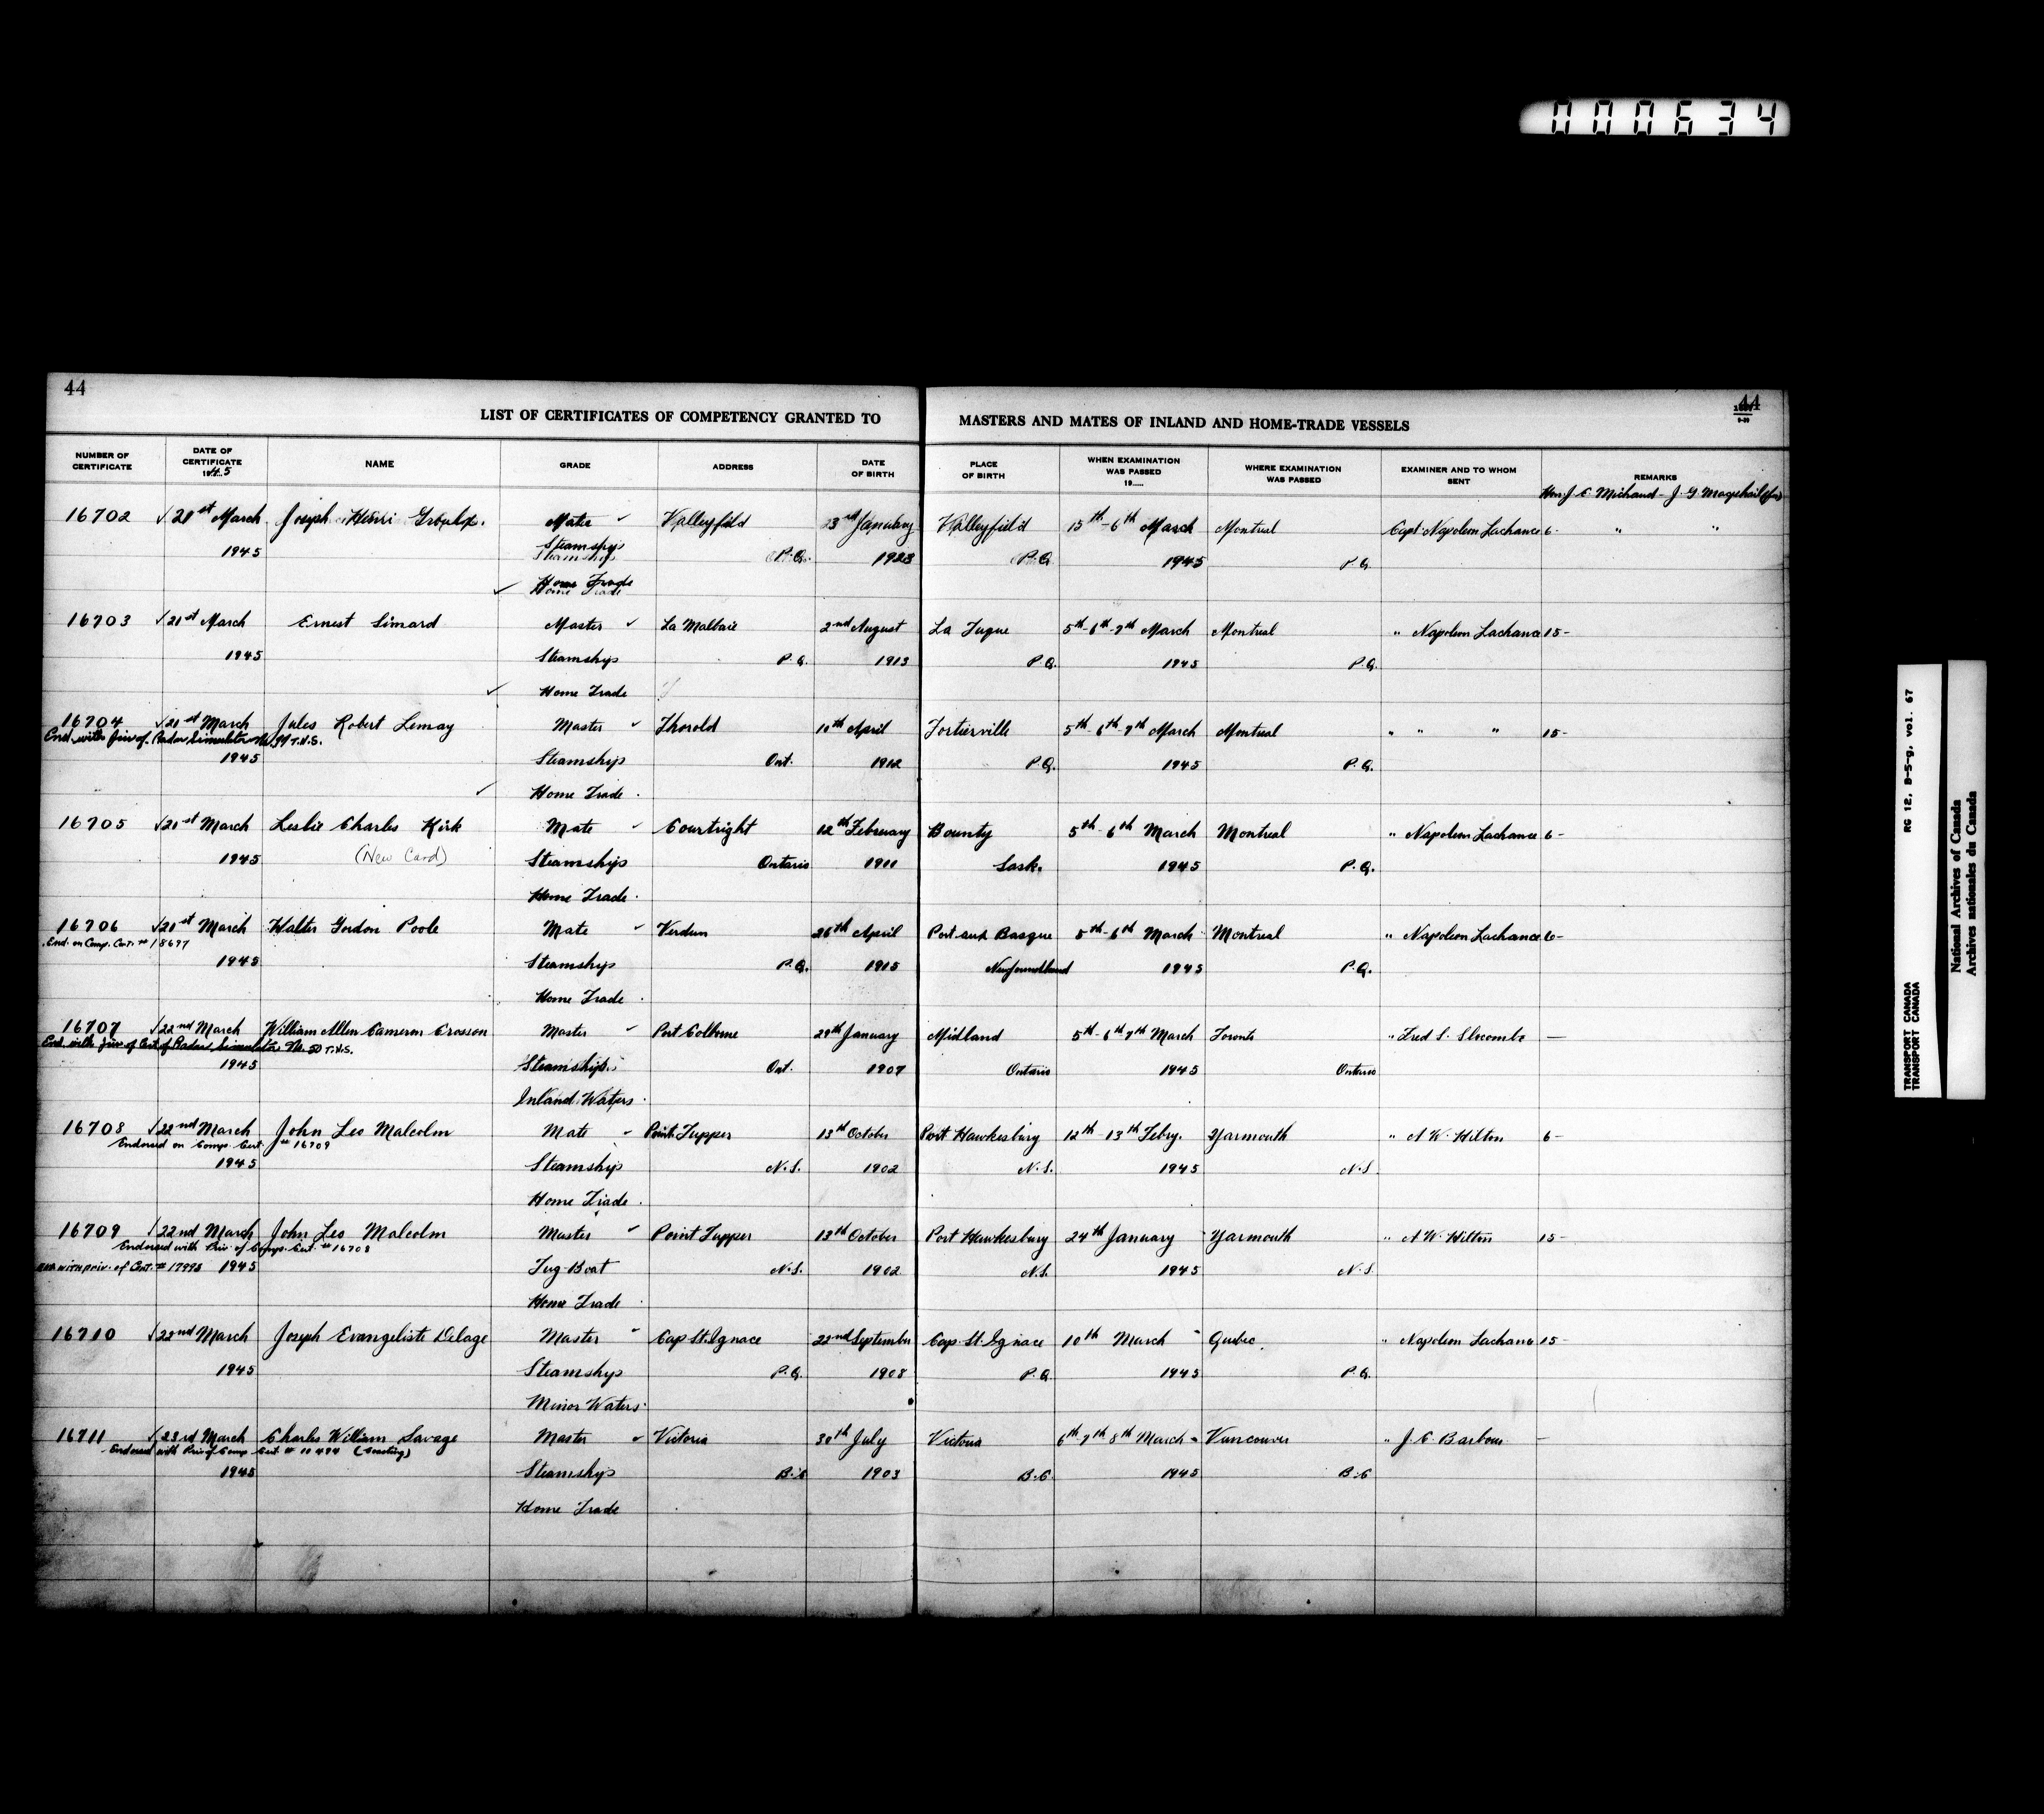 000634
44
44
LIST OF CERTIFICATES OF COMPETENCY GRANTED TO MASTERS AND MATES OF INLAND AND HOME-TRADE VESSELS
NUMBER OF CERTIFICATE DATE OF CERTIFICATE 1945 NAME GRADE ADDRESS DATE OF BIRTH PLACE OF BIRTH WHEN EXAMINATION WAS PASSED 19..... WHERE EXAMINATION WAS PASSED EXAMINER AND TO WHOM SENT REMARKS
Hon. J. E. Michaud - J. G. Macphail
16702 ✓ 21st March Joseph Henri Mate ✓ Valleyfield 23rd January Valleyfield 15th-6th March Montreal Capt Napoleon Lachance 6- " "
1945 Steamship P.Q. 1923 P.Q. 1945 P.Q.
✓ Home Trade
16703 ✓ 21st March Ernest Simard Master ✓ La Malbaie 2nd August La Tuque 5th-6th-7th March Montreal " Napoleon Lachance 15-
1945 Steamship P.Q. 1913 P.Q. 1945 P.Q.
✓ Home Trade
16704 ✓ 21st March Jules Robert Lemay Master ✓ Thorold 10th April Fortierville 5th-6th-7th March Montreal " " " 15-
End. with priv of Radar Simulator No. 39 T.H.S.
1945 Steamship Ont. 1912 P.Q. 1945 P.Q.
✓ Home Trade
16705 ✓ 21st March Leslie Charles Kirk Mate ✓ Courtright 12th February Bounty 5th-6th March Montreal " Napoleon Lachance 6-
1945 (New Card) Steamship Ontario 1911 Sask. 1945 P.Q.
Home Trade
16706 ✓ 21st March Walter Gordon Poole Mate ✓ Verdun 26th April Port aux Basque 5th-6th March Montreal " Napoleon Lachance 6-
End. on Comp. Cert. # 18677
1945 Steamship P.Q. 1915 Newfoundland 1945 P.Q.
Home Trade
16707 ✓ 22nd March William Allen Cameron Crosson Master ✓ Port Colborne 29th January Midland 5th-6th 7th March Toronto " Fred S. Slocombe —
End. with priv of Cert of Radar Simulator No. 50 T.H.S.
1945 Steamship Ont. 1907 Ontario 1945 Ontario
Inland Waters
16708 ✓ 22nd March John Leo Malcolm Mate ✓ Point Tupper 13th October Port Hawkesbury 12th-13th Febry. Yarmouth " A W. Hilton 6-
Endorsed on Comp. Cert. # 16709
1945 Steamship N.S. 1902 N.S. 1945 N.S.
Home Trade
16709 ✓ 22nd March John Leo Malcolm Master ✓ Point Tupper 13th October Port Hawkesbury 24th January Yarmouth " A W. Hilton 15-
Endorsed with Priv of Comp. Cert. # 16708
with priv. of Cert. # 17998 1945 Tug-Boat N.S. 1902 N.S. 1945 N.S.
Home Trade
16710 ✓ 22nd March Joseph Evangeliste Delage Master ✓ Cap St. Ignace 22nd September Cap St. Ignace 10th March Quebec " Napoleon Lachance 15-
1945 Steamship P.Q. 1908 P.Q. 1945 P.Q.
Minor Waters
16711 ✓ 23rd March Charles William Savage Master ✓ Victoria 30th July Victoria 6th-7th 8th March Vancouver " J. C. Barbour —
Endorsed with Priv of Comp. Cert # 10494 (Coasting)
1945 Steamship B.C. 1903 B.C. 1945 B.C.
Home Trade
TRANSPORT CANADA RG 12, B-5-g, vol. 67
TRANSPORT CANADA
National Archives of Canada
Archives nationales du Canada